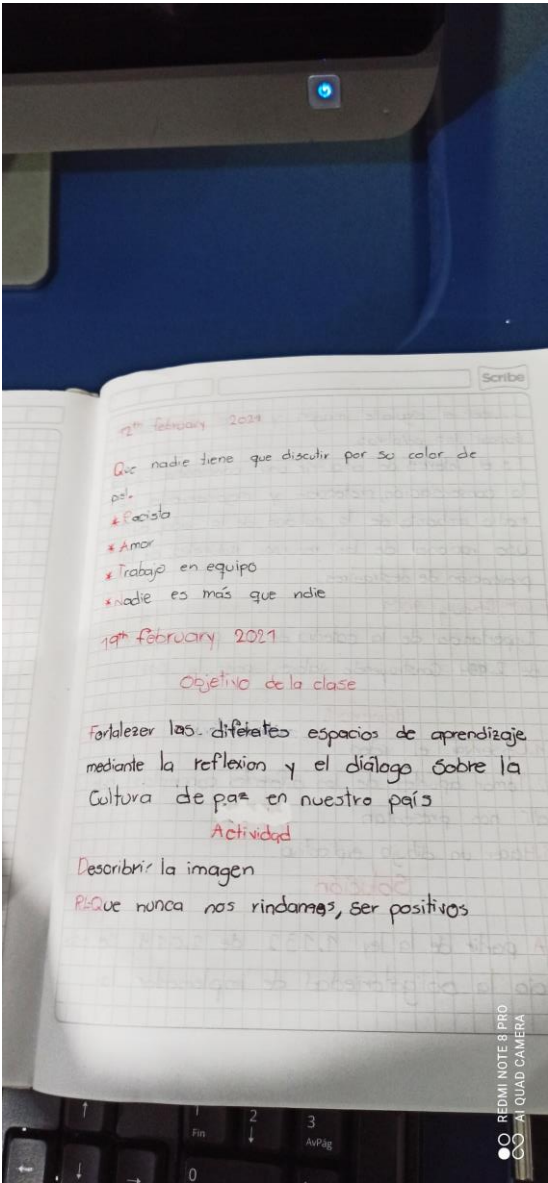 Scribe
12th february 2021
Que nadie tiene que discutir por su color de
piel.
* Racista
* Amor
* Trabajo en equipo
* Nadie es más que ndie
19th february 2021
Objetivo de la clase
Fortalezer las diferetes espacios de aprendizaje
mediante la reflexion y el diálogo Sobre la
Cultura de paz en nuestro país
Actividad
Describrir la imagen
R/-Que nunca nos rindamos, ser positivos
REDMI NOTE 8 PRO
AI QUAD CAMERA
1
2
3
Fin
AvPág
0